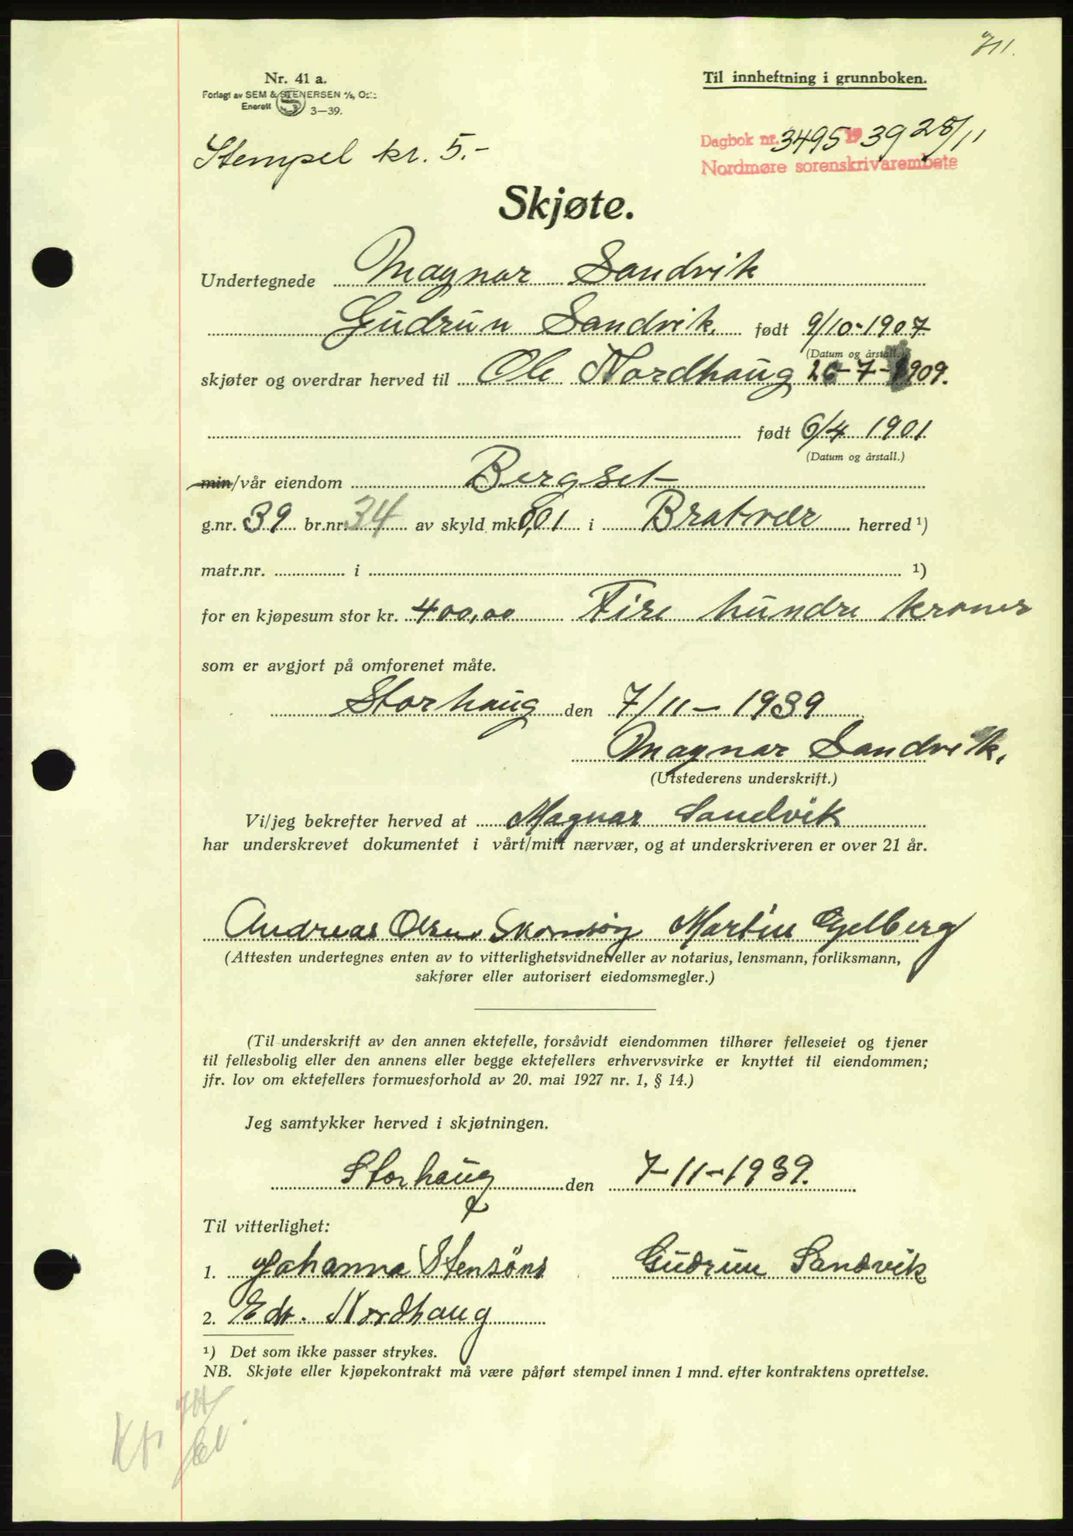 711.
Nr. 41 a.
Forlagt av SEM & STENERSEN A/S, Oslo
Enerett 3—39.
Til innheftning i grunnboken.
Stempel kr. 5.-
Dagbok nr. 3495 1939 28/11
Nordmøre sorenskrivarembete
Skjøte.
Undertegnede Magnar Sandvik
Gudrun Sandvik født 9/10-1907
(Datum og årstall.)
skjøter og overdrar herved til Ole Nordhaug 26-7-1909.
født 6/4 1901
(Datum og årstall.)
min/vår eiendom Bergset
g.nr. 39 br.nr. 34 av skyld mk 0,01 i Bratvær herred ¹)
matr.nr. i ¹)
for en kjøpesum stor kr. 400,00 Fire hundre kroner
som er avgjort på omforenet måte.
Storhaug den 7/11-1939
Magnar Sandvik.
(Utstederens underskrift.)
Vi/jeg bekrefter herved at Magnar Sandvik
har underskrevet dokumentet i vårt/mitt nærvær, og at underskriveren er over 21 år.
Andreas Olsen Skomsøy Martin Gjelberg
(Attesten undertegnes enten av to vitterlighetsvidner eller av notarius, lensmann, forliksmann,
sakfører eller autorisert eiedomsmegler.)
(Til underskrift av den annen ektefelle, forsåvidt eiendommen tilhører felleseiet og tjener
til fellesbolig eller den annens eller begge ektefellers erhvervsvirke er knyttet til eiendommen;
jfr. lov om ektefellers formuesforhold av 20. mai 1927 nr. 1, § 14.)
Jeg samtykker herved i skjøtningen.
Storhaug den 7-11-1939.
Til vitterlighet:
1. Johanna Stensöns Gudrun Sandvik
2. Edv. Nordhaug
¹) Det som ikke passer strykes.
NB. Skjøte eller kjøpekontrakt må være påført stempel innen 1 mnd. efter kontraktens oprettelse.